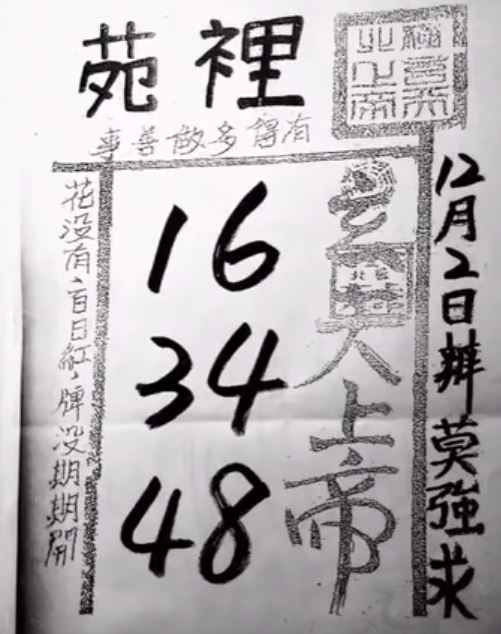 苑裡
有得多做善事
12月2日辦莫強求
玄天上帝
16
34
48
花没有百日紅，牌没期期開